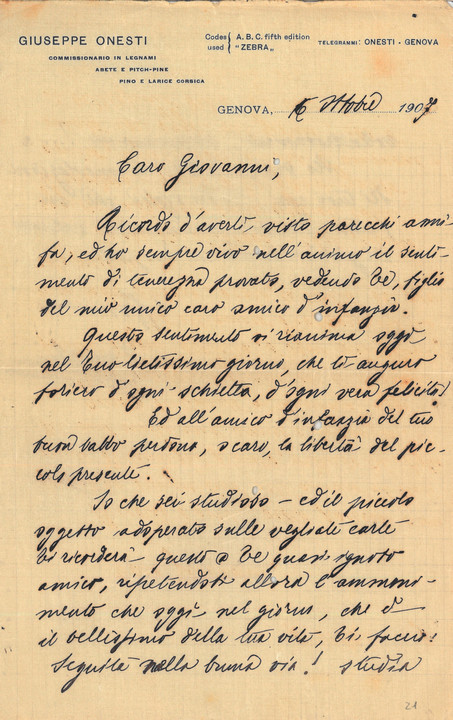 GIUSEPPE ONESTI
COMMISSIONARIO IN LEGNAMI
ABETE E PITCH-PINE
PINO E LARICE CORSICA
Codes used { A. B. C. fifth edition
"ZEBRA"
TELEGRAMMI: ONESTI - GENOVA
GENOVA, 16 Ottobre 1907
Caro Giovanni,
Ricordo d'averti visto parecchi anni
fa, ed ho sempre vivo nell'animo il senti-
mento di tenerezza provato, vedendo te, figlio
del mio unico caro amico d'infanzia.
Questo sentimento si rianima oggi
nel tuo lietissimo giorno, che ti auguro
foriero d'ogni schietta, d'ogni vera felicità!
Ed all'amico d'infanzia del tuo
buon babbo perdona, o caro, la libertà del pic-
colo presente.
So che sei studioso - ed il piccolo
oggetto adoperato sulle vegliate carte
ti ricorderà questo a te quasi ignoto
amico, ripetendoti allora l'ammoni-
mento che oggi nel giorno, che è
il bellissimo della tua vita, ti faccio:
Seguita nella buona via! studia
21